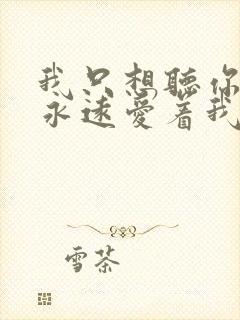 我只想聽你
永遠愛着我
雪茶